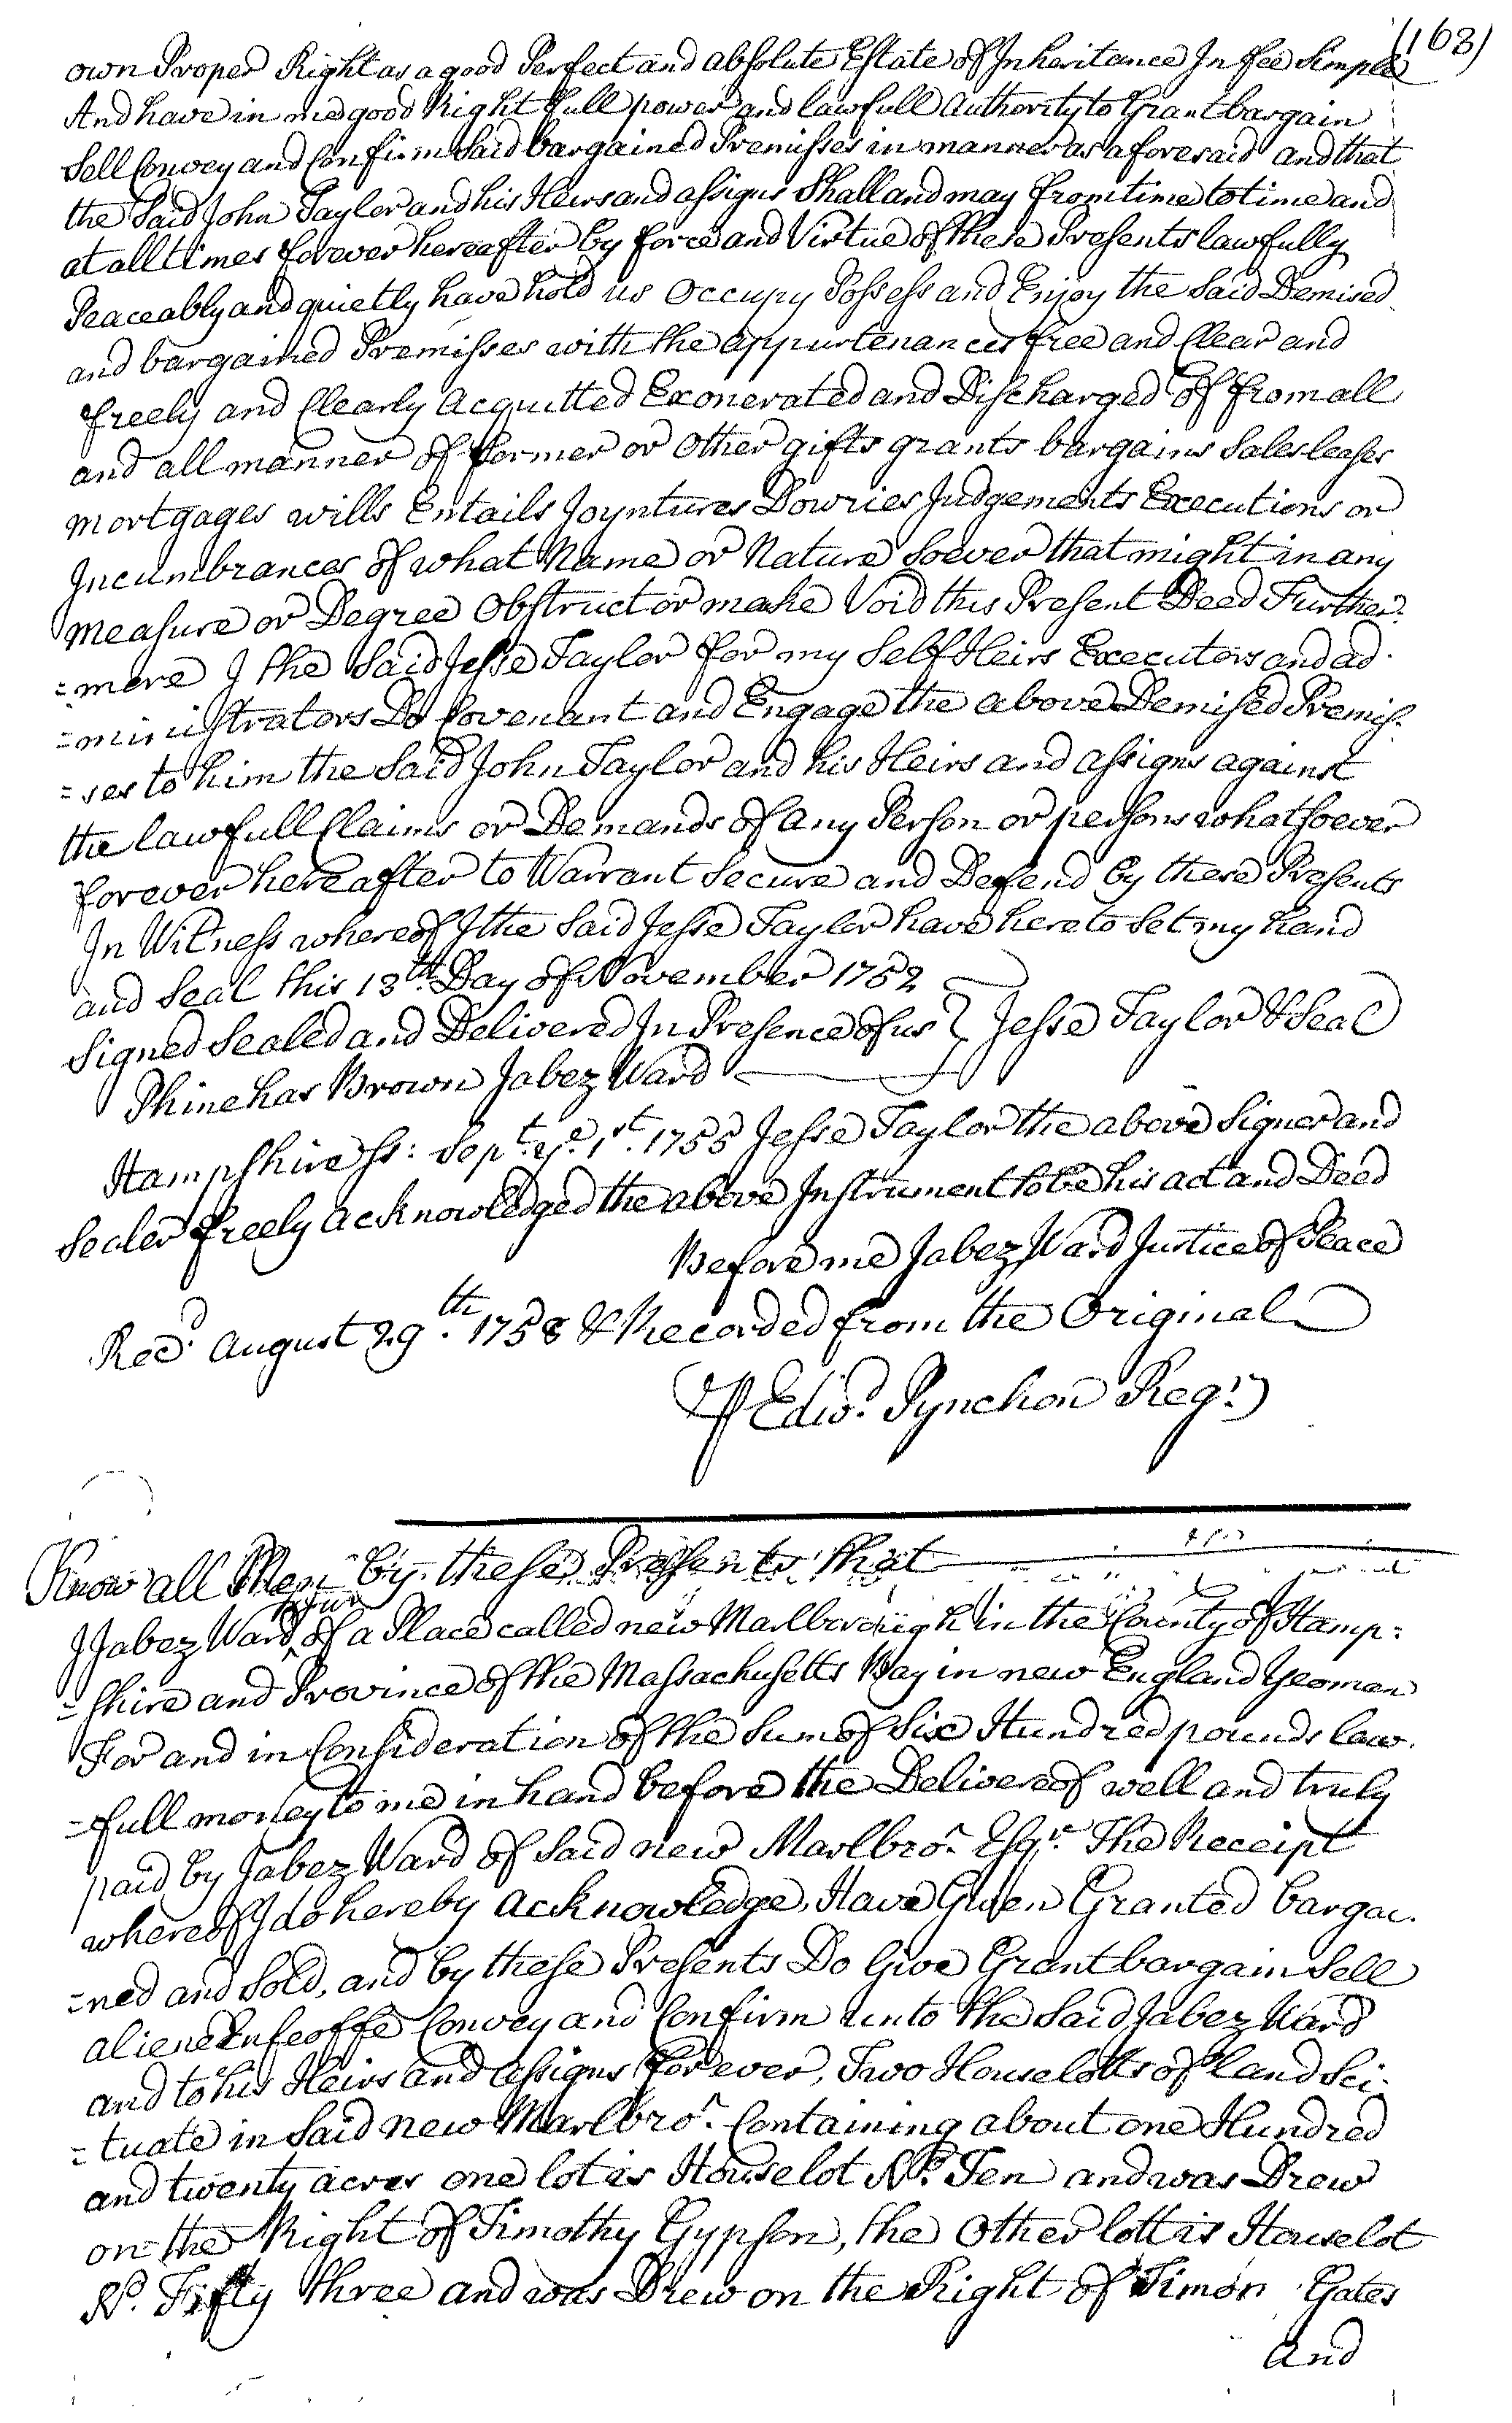 (163)
own Proper Right as a good Perfect and absolute Estate of Inheritance In fee Simple
And have in me good Right full power and lawfull Authority to Grant bargain
Sell Convey and Confirm Said bargained Premisses in manner as aforesaid and that
the Said John Taylor and his Heirs and assigns Shall and may from time to time and
at all times forever hereafter by force and Virtue of these Presents lawfully
Peaceably and quietly have hold us Occupy Possess and Enjoy the Said Demised
and bargained Premisses with the appurtenances free and Clear and
freely and Clearly Acquitted Exonerated and Discharged of from all
and all manner of former or Other gifts grants bargains Sales leases
mortgages wills Entails Joyntures Dowries Judgements Executions or
Incumbrances of what Name or Nature Soever that might in any
measure or Degree Obstruct or make Void this Present Deed Further=
=more I the Said Jesse Taylor for my Self Heirs Executors and ad
=ministrators Do Covenant and Engage the above Demised Premis=
=ses to him the Said John Taylor and his Heirs and assigns against
the lawfull Claims or Demands of any Person or persons whatsoever
forever hereafter to Warrant Secure and Defend by these Presents
In Witness whereof I the Said Jesse Taylor have hereto Set my hand
and Seal this 13th. Day of November 1752
Signed Sealed and Delivered In Presence of us } Jesse Taylor & Seal
Phinehas Brown Jabez Ward
Hampshire Ss: Sept. ye. 1st. 1755 Jesse Taylor the above Signer and
Sealer freely acknowledged the above Instrument to be his act and Deed
Before me Jabez Ward Justice of Peace
Recd. August 29th. 1758 & Recorded from the Original
P Edwd. Pynchon Regr.
Know all Men by these Presents that
I Jabez Ward Junr of a Place called new Marlborough in the County of Hamp=
=shire and Province of the Massachusetts Bay in new England Yeoman
For and in Consideration of the Sum of Six Hundred pounds law
=full money to me in hand before the Delivereof well and truly
paid by Jabez Ward of Said new Marlbro. Esqr. The Receipt
whereof I do hereby acknowledge, Have Given Granted bargai
=ned and Sold, and by these Presents Do Give Grant bargain Sell
aliene Enfeoffe Convey and Confirm unto the Said Jabez Ward
and to his Heirs and assigns forever, Two Houselotts of land Sci
=tuate in Said new Marlbro. Containing about one Hundred
and twenty acres one lot is Houselot No. Ten and was Drew
on the Right of Timothy Gypson, the Other lott is Houselot
No. Fifty three and was Drew on the Right of Simon Gates
And